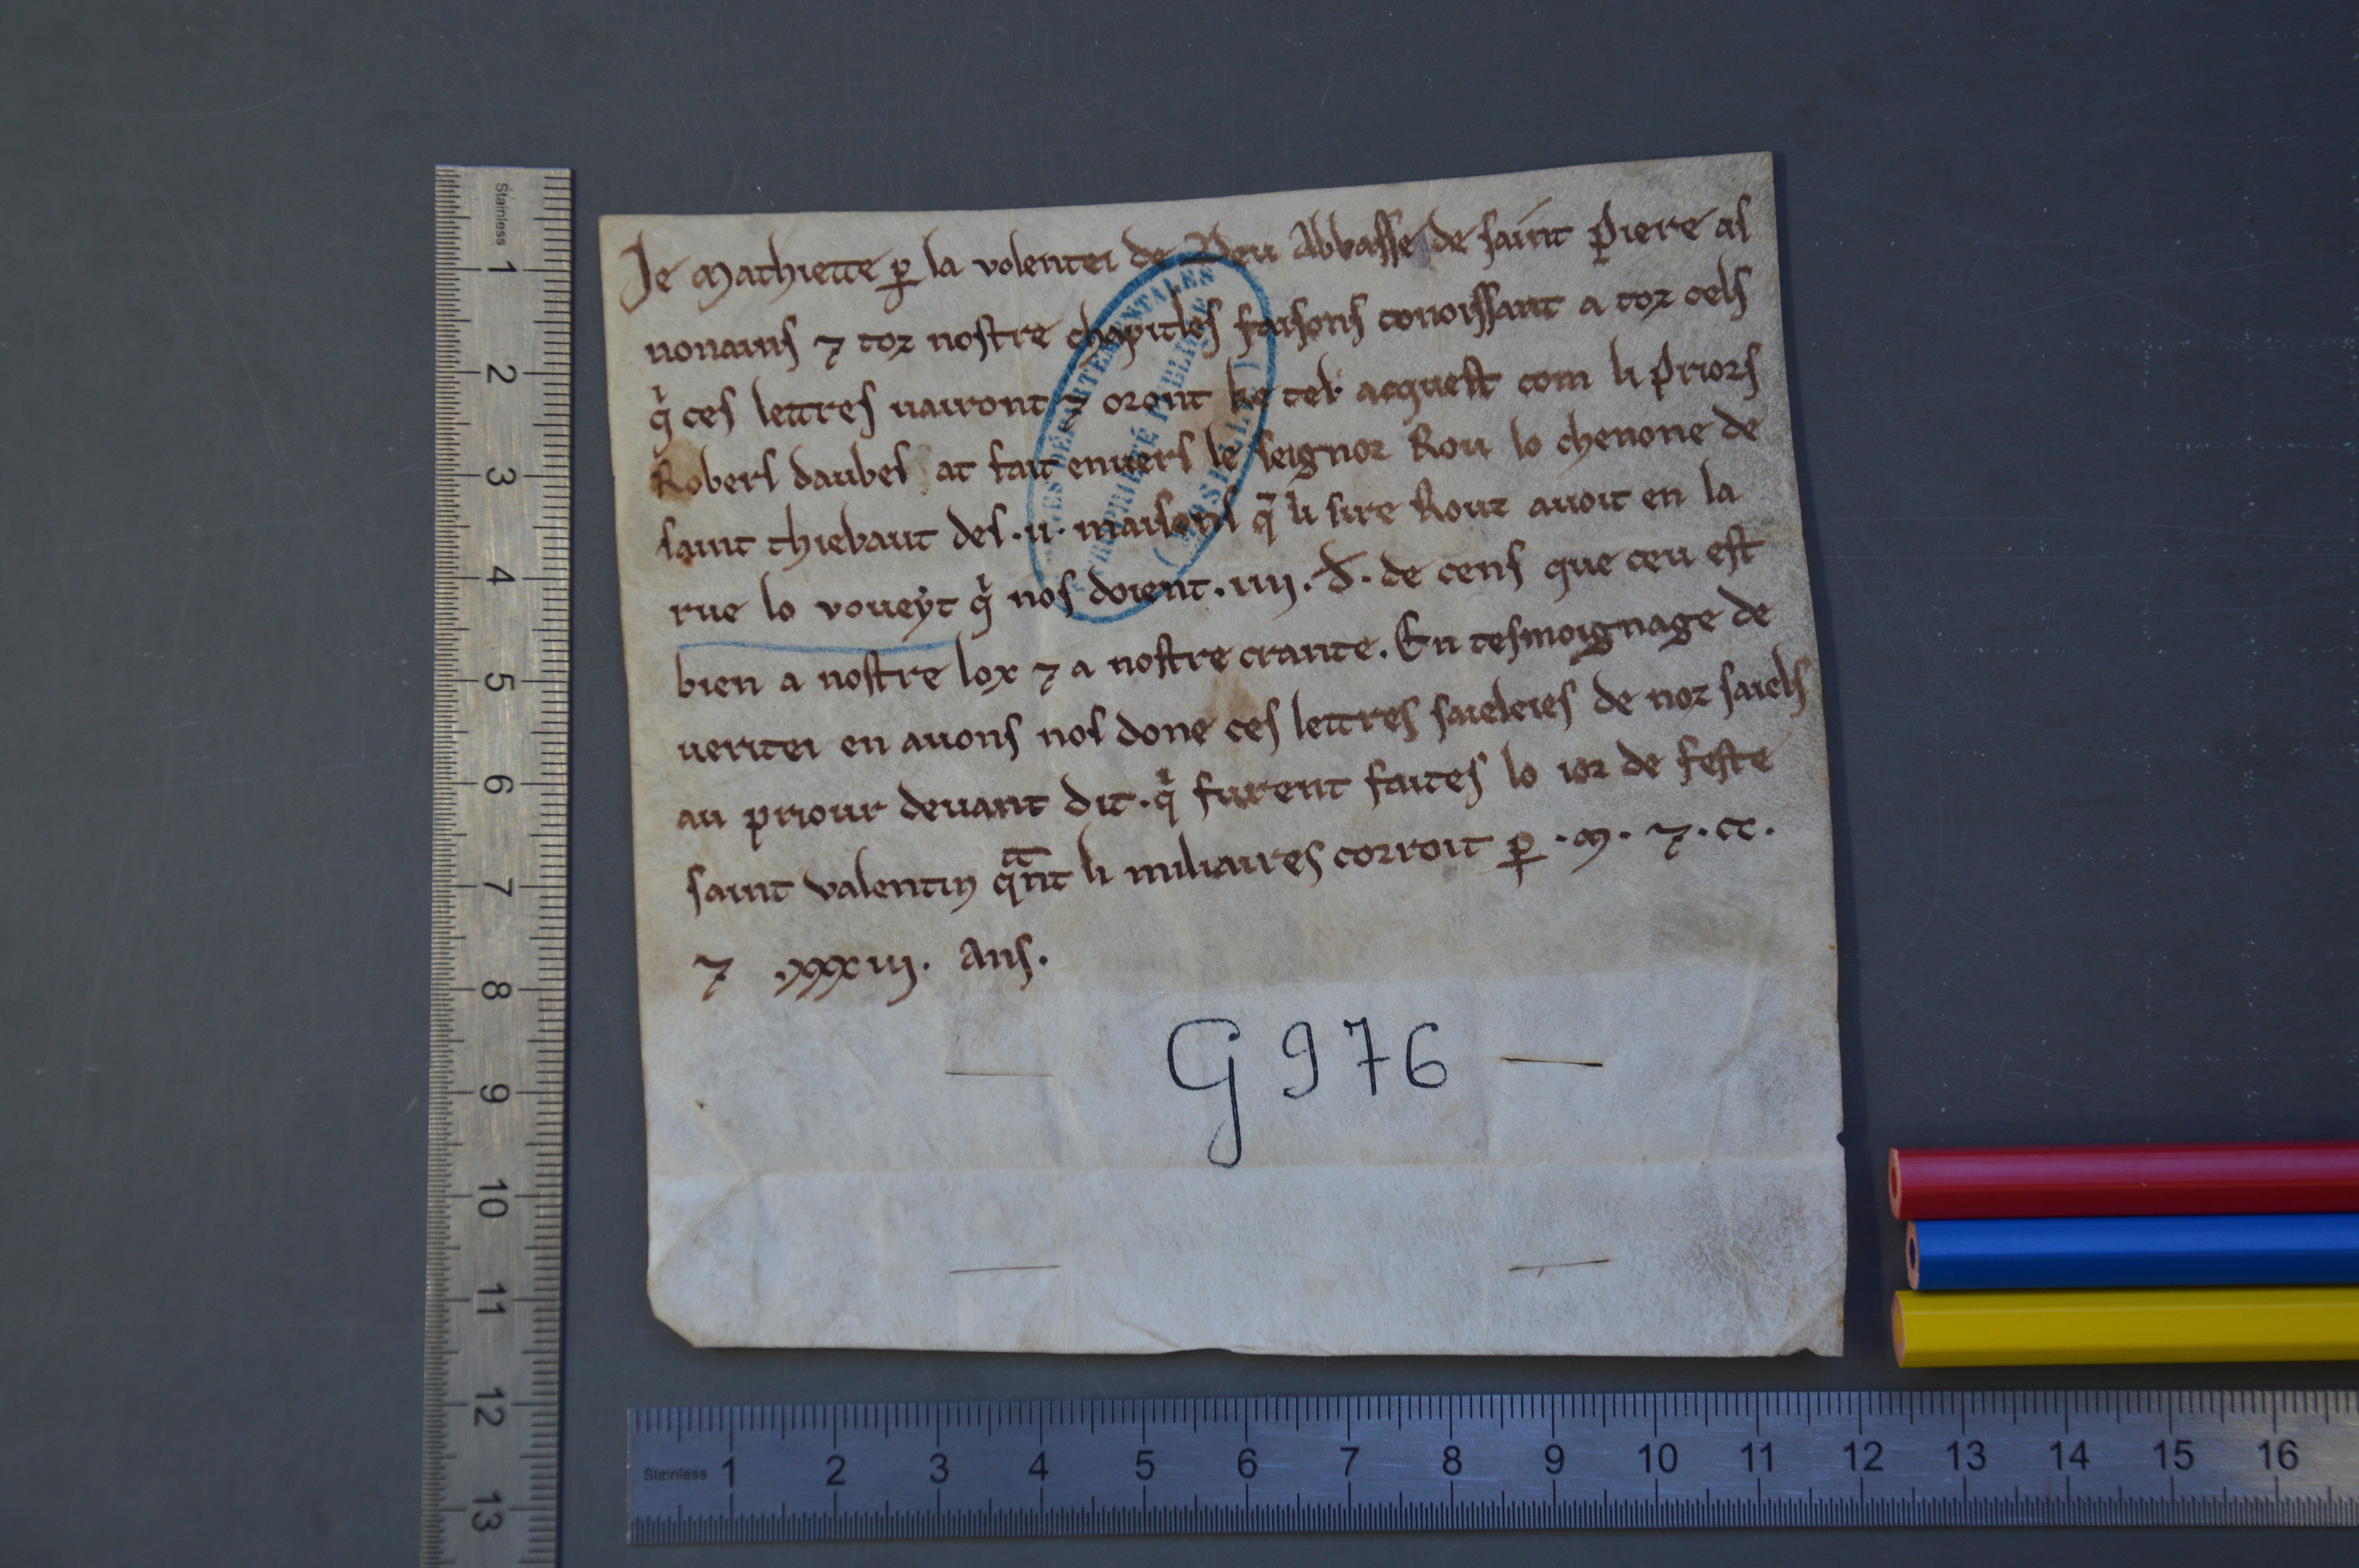 Je Mathiette ꝑ la volentei de Deu Abbasse de saint Piere as
nonains ⁊ toz nostre chapitles faisons conoissant a toz cels
qͥ ces lettres uairont ⁊ oront ke tel acquest com li Priors
Robers daubes at fait enuers le seignor Rou lo chenone de
saint thiebaut des .ii. maisons qͥ li sire Rouz auoit en la
rue lo voueyt qͥ nos doient .iiii. d. de cens que ceu est
bien a nostre lox ⁊ a nostre crante. En tesmoignage de
ueritei en auons nos done ces lettres saieleies de noz saiels
au priour deuant dit. qͥ furent faites lo ior de feste
saint valentin qᵃnt li miliaires corroit ꝑ .M. ⁊ .CC.
⁊ .xxxiii. Ans.
G 976
ARCHIVES DÉPARTEMENTALES
PROPRIÉTÉ PUBLIQUE
Stainless
1 2 3 4 5 6 7 8 9 10 11 12 13
Stainless
1 2 3 4 5 6 7 8 9 10 11 12 13 14 15 16